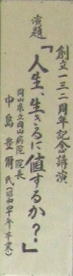 創立一三二周年記念講演
演題
「人生、生きるに値するか?」
岡山県立岡山病院 院長
中島豊爾氏(昭和四十年卒)